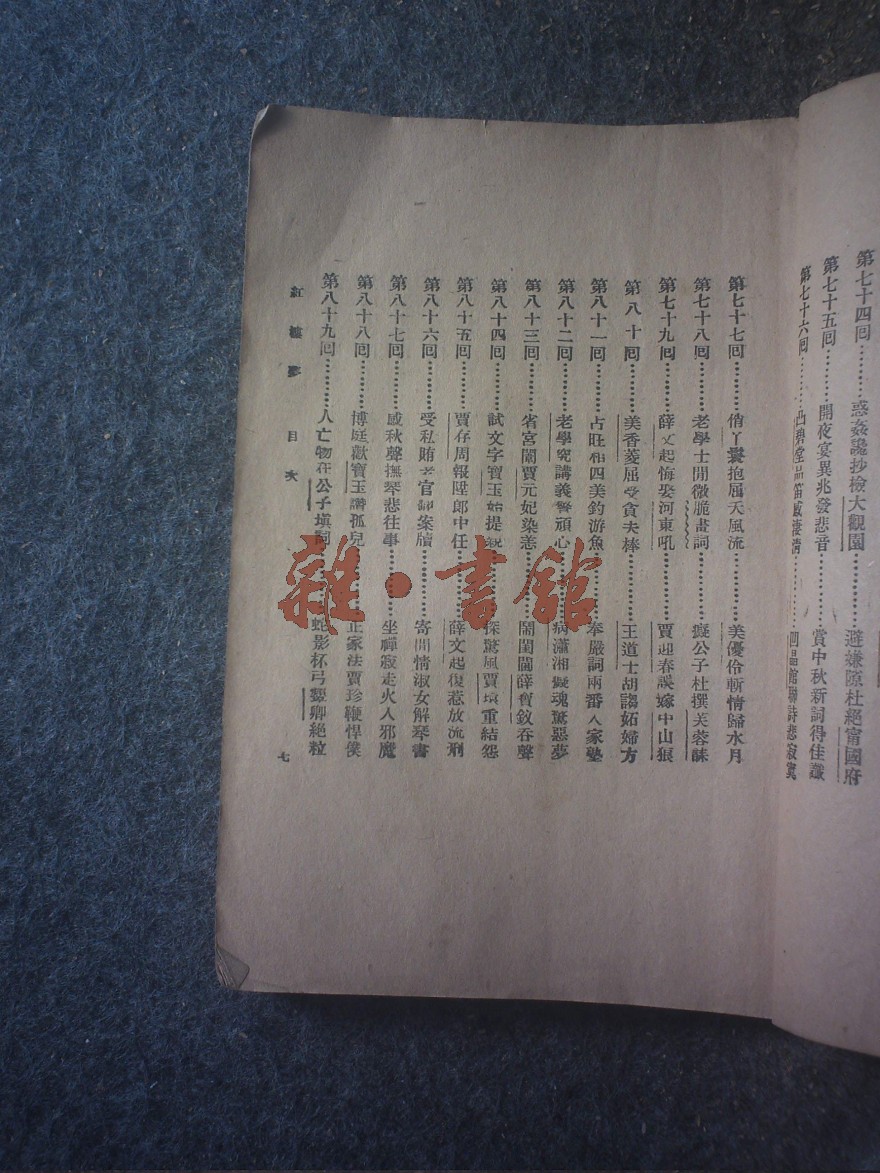 第七十四回………惑姦讒抄檢大觀園 避嫌隙杜絕甯國府
第七十五回………開夜宴異兆發悲音………賞中秋新詞得佳讖
第七十六回………凸碧堂品笛感淒清………凹晶館聯詩悲寂寞
第七十七回………俏丫鬟抱屈夭風流………美優伶斬情歸水月
第七十八回………老學士閒徵詭畫詞………癡公子杜撰芙蓉誄
第七十九回………薛文起悔娶河東吼………賈迎春誤嫁中山狼
第八十回………美香菱屈受貪夫棒………王道士胡謅妬婦方
第八十一回………占旺相四美釣游魚………奉嚴詞兩番入家塾
第八十二回………老學究講義警頑心………病瀟湘癡魂驚惡夢
第八十三回………省宮闈賈元妃染恙………鬧閨閫薛寶釵吞聲
第八十四回………試文字寶玉始提親………探驚風賈環重結怨
第八十五回………賈存周報陞郎中任………薛文起復惹放流刑
第八十六回………受私賄老官翻案牘………寄閒情淑女解琴書
第八十七回………感秋聲撫琴悲往事………坐禪寂走火入邪魔
第八十八回………博庭歡寶玉讚孤兒………正家法賈珍鞭悍僕
第八十九回………人亡物在公子塡詞………蛇影杯弓顰卿絕粒
紅樓夢 目次 七
雜·書館